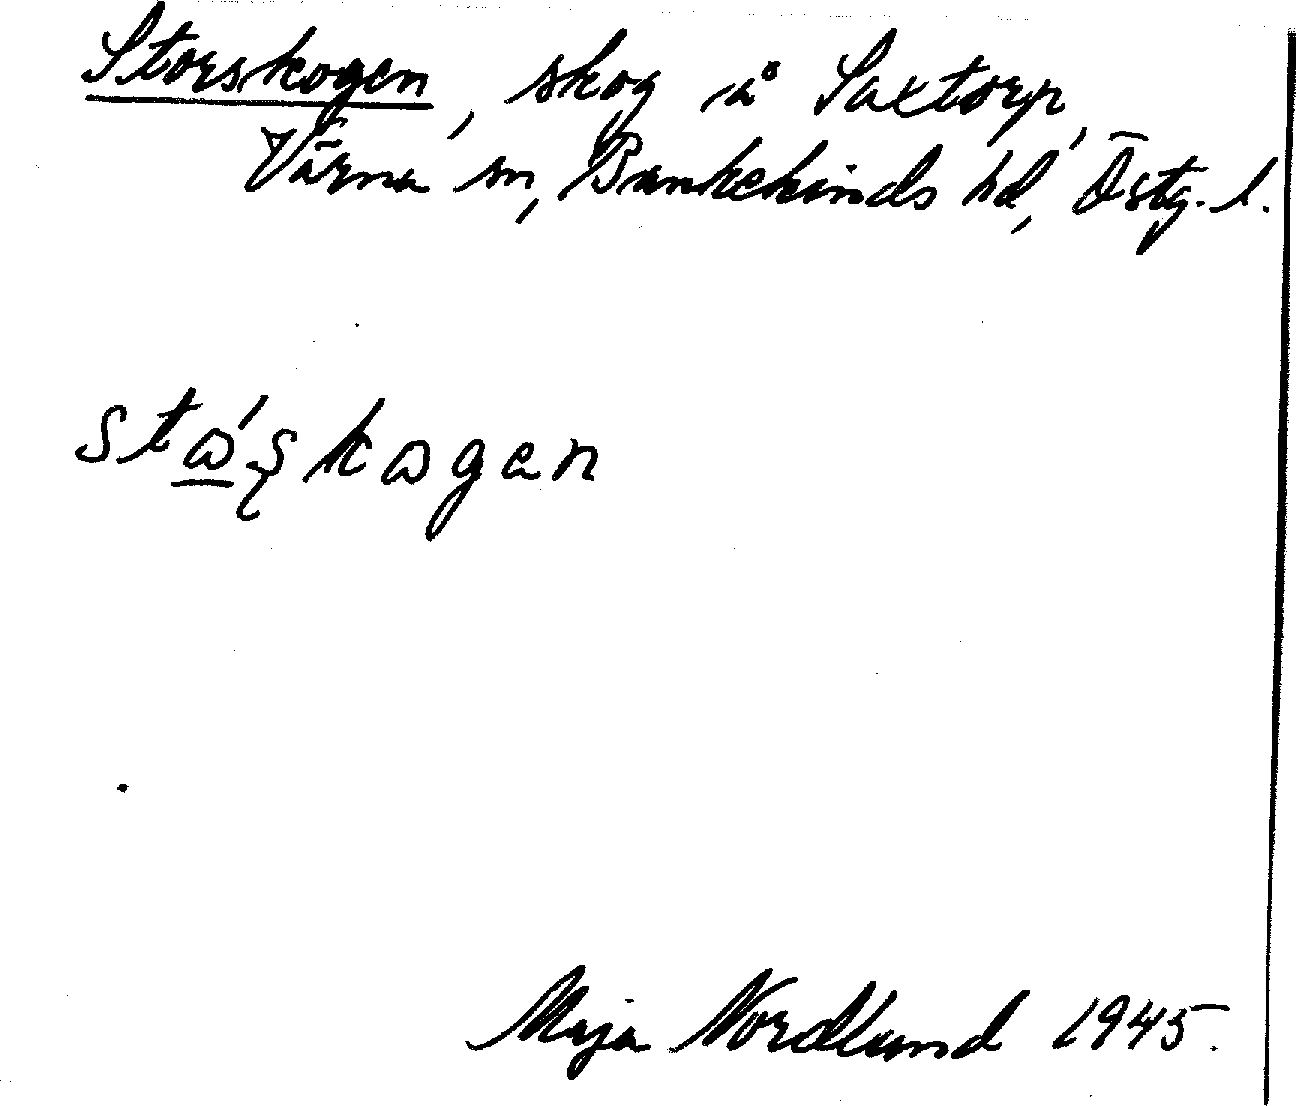 Storskogen, skog å Saxtorp,
Värna sn, Bankekinds hd, Östg. l.
stɷ́ʂkɷgen
Maja Nordlund 1945.